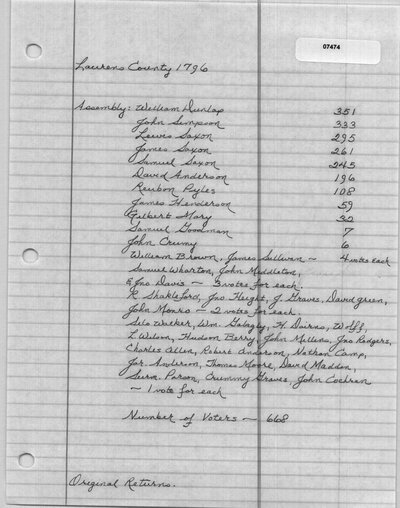 07474
Laurens County 1796
Assembly: William Dunlap 351
John Simpson 333
Lewis Saxon 295
James Saxon 261
Samuel Saxon 245
David Anderson 196
Reubon Pyles 108
James Henderson 59
Gilbert Mary 32
Samuel Goodman 7
John Crumy 6
William Brown, James Sullivan ~ 4 votes each
Samuel Wharton, John Middleton,
& Jno Davis ~ 3 votes for each.
R. Shakleford, Jno Hught, J. Graves, David green,
John Monro ~ 2 votes for each
Silo Walker, Wm. Golagly, H. Dairno, Wolff,
L. Wilson, Hudson Berry, John Millens, Jno Rodgers,
Charles Allen, Robert Anderson, Nathan Camp,
Jas. Anderson, Thomas Moore, David Madden,
Parson, Crummy Graves, John Cochran
~ 1 vote for each
Number of Voters ~ 668
Original Returns.